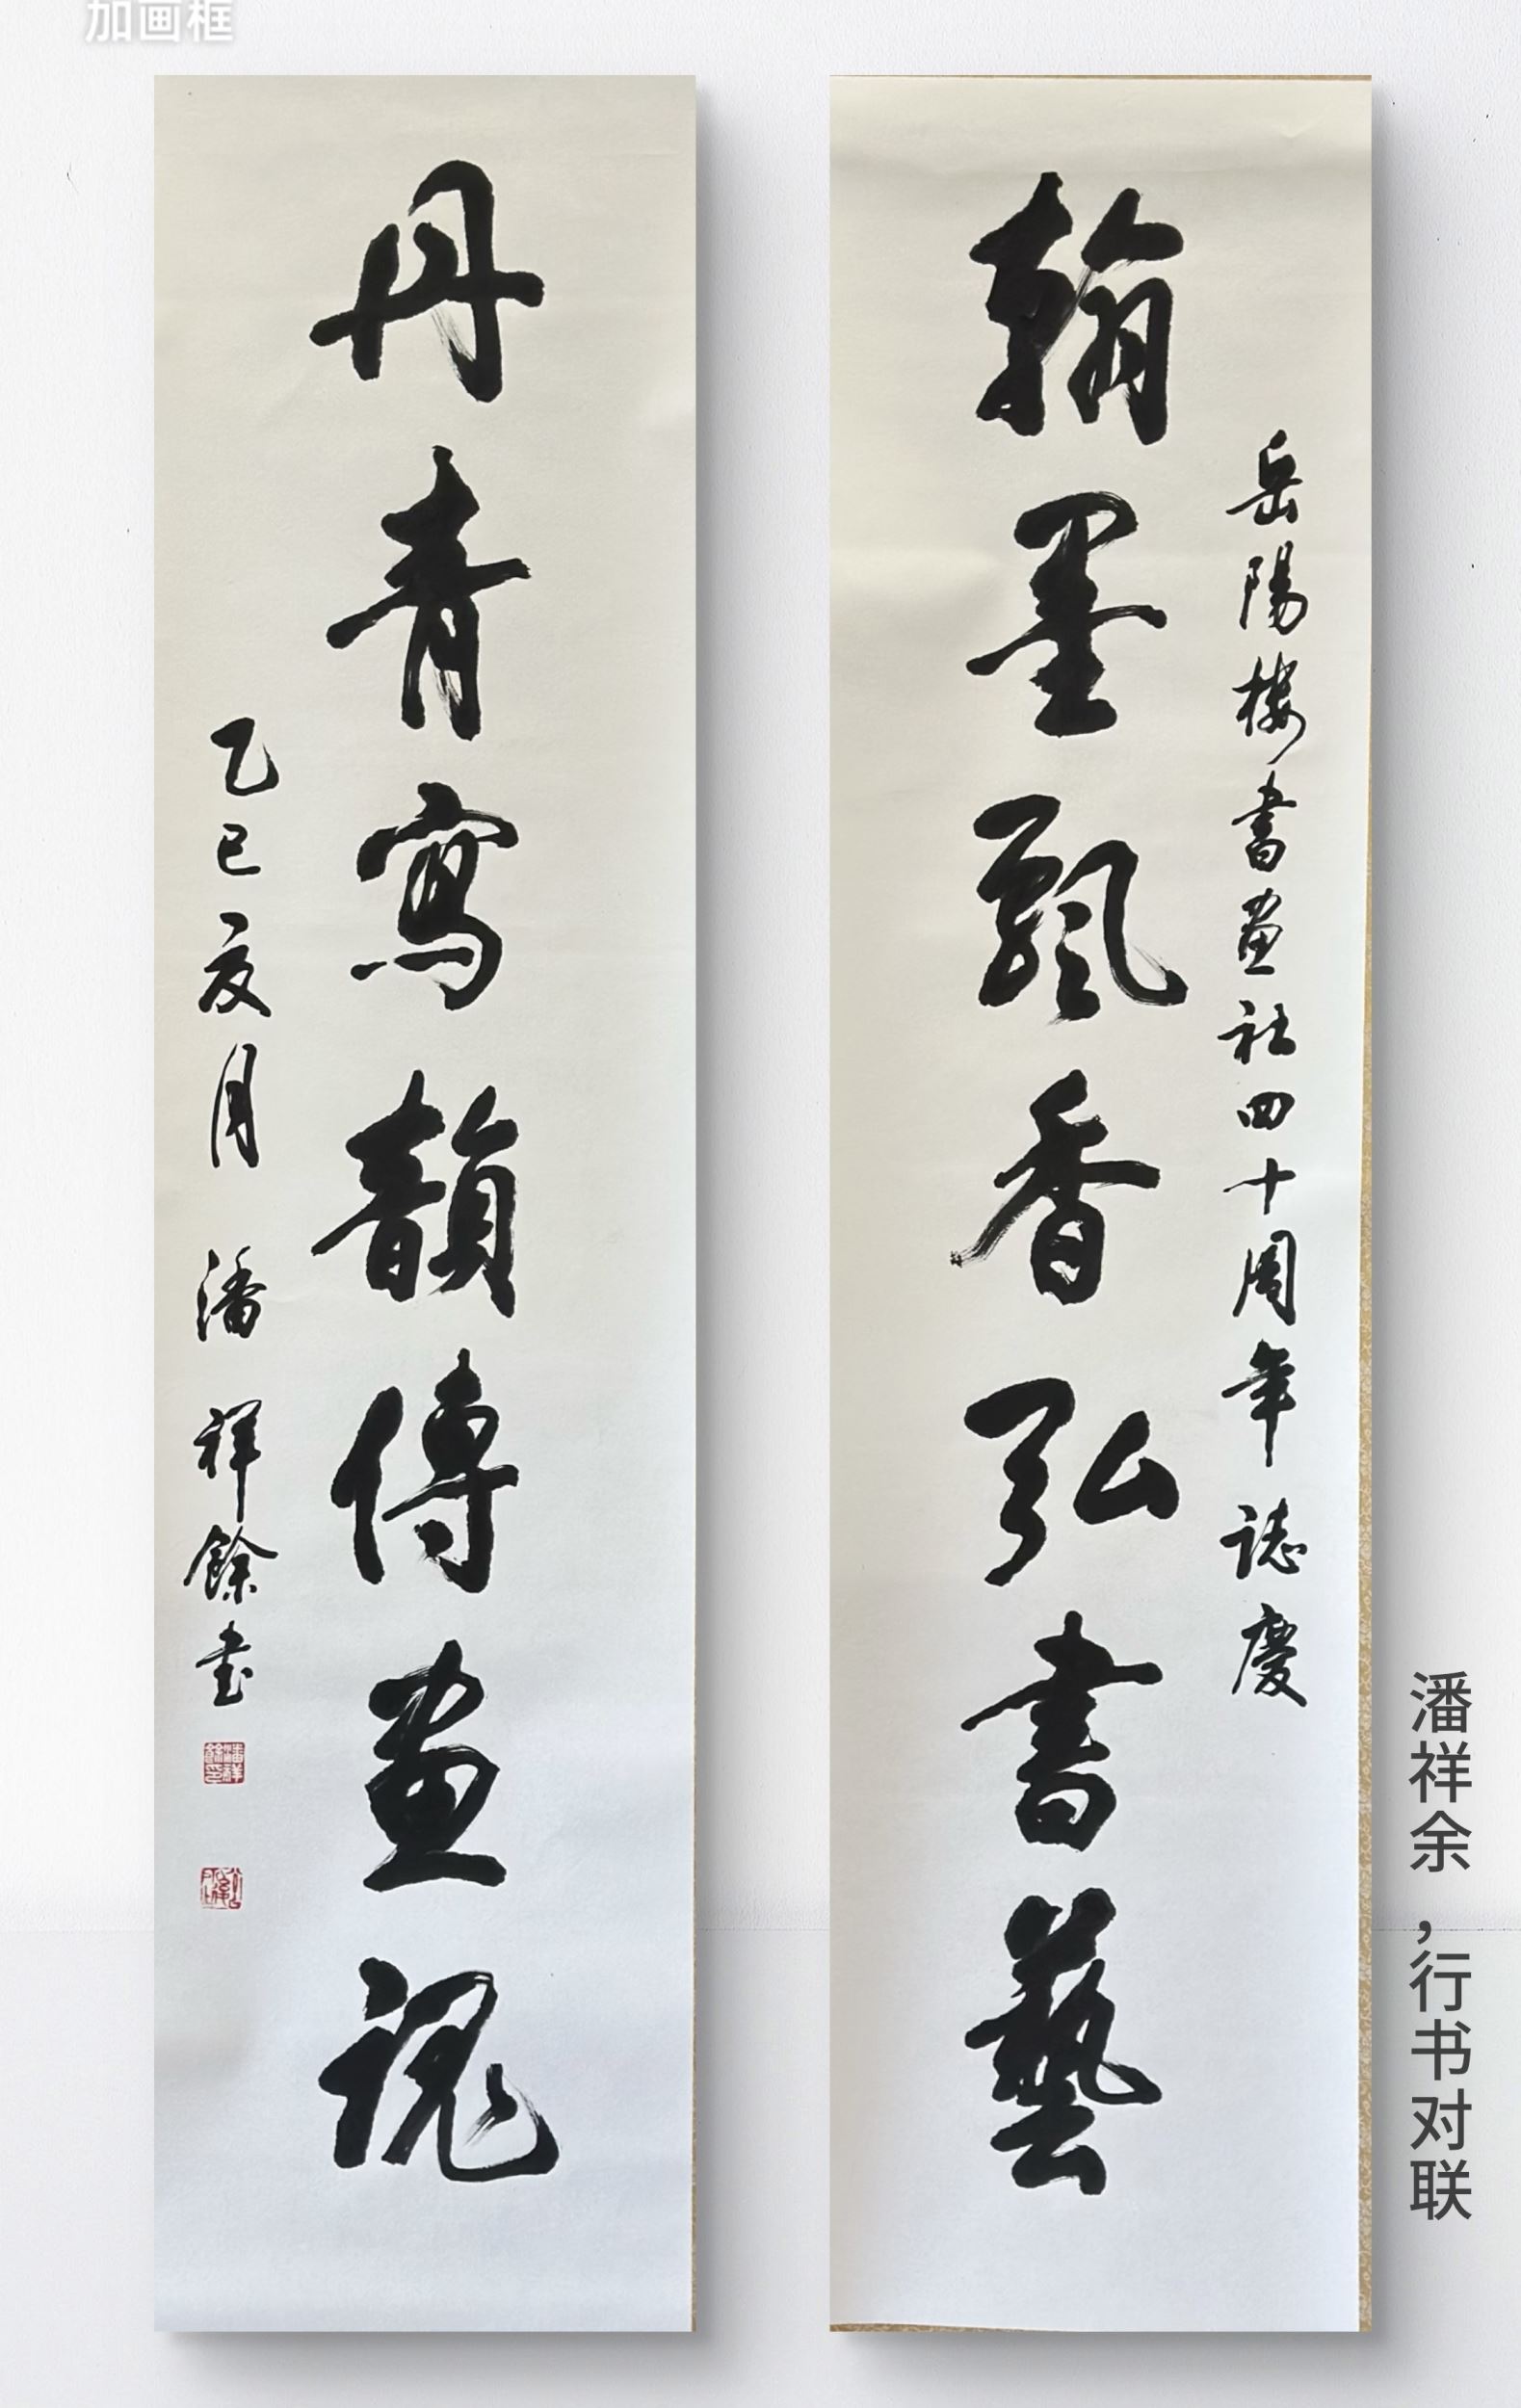 加画框
岳陽樓書畫社四十周年誌慶
翰墨飄香弘書藝
丹青寫韻傳畫魂
乙巳夏月 潘祥餘書
潘祥餘印
潘祥余，行书对联